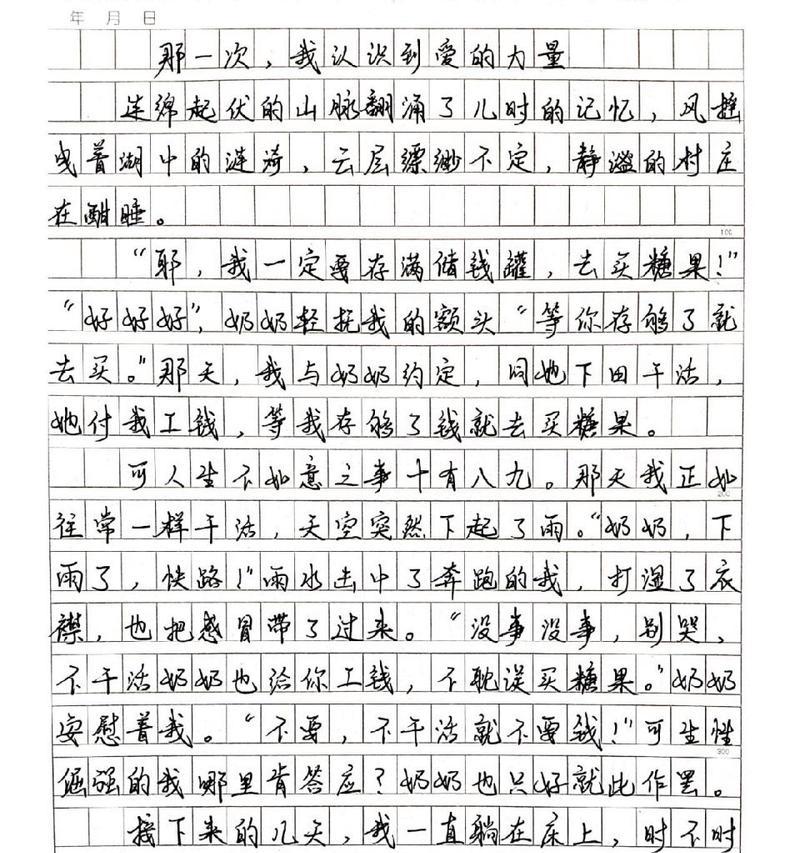 年 月 日
那一次，我认识到爱的力量
连绵起伏的山脉翻涌了儿时的记忆，风摇
曳着湖中的涟漪，云层缥缈不定，静溢的村庄
在酣睡。
100
“耶，我一定要存满储钱罐，去买糖果！”
“好好好”，奶奶轻抚我的额头“等你存够了就
去买。”那天，我与奶奶约定，同她下田干活，
她付我工钱，等我存够了钱就去买糖果。
可人生不如意之事十有八九。那天我正如
200
往常一样干活，天空突然下起了雨。“奶奶，下
雨了，快路！”雨水击中了奔跑的我，打湿了衣
襟，也把感冒带了过来。“没事没事，别哭，
不干活奶奶也给你工钱，不耽误买糖果。”奶奶
安慰着我。“不要，不干活就不要钱！”可生性
300
倔强的我哪里肯答应？奶奶也只好就此作罢。
接下来的几天，我一直躺在床上，时不时